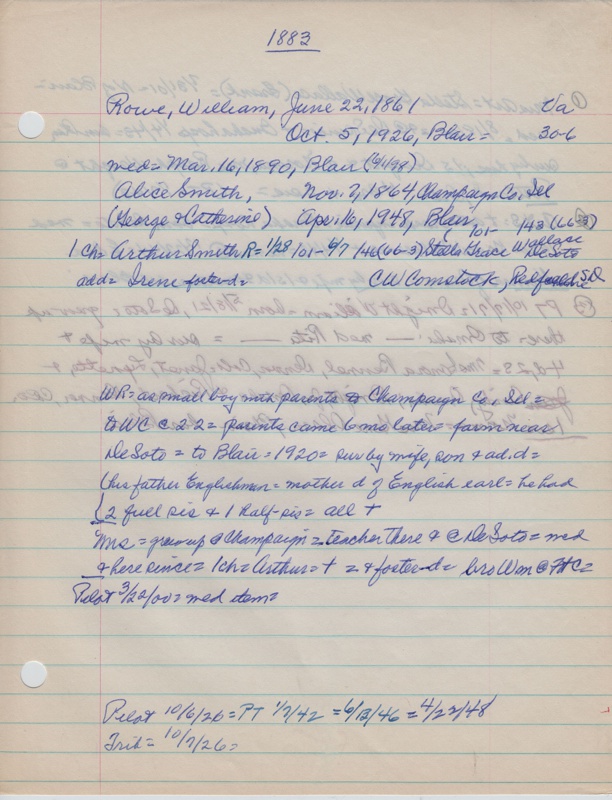 1883
Rowe, William, June 22, 1861 Va
Oct. 5, 1926, Blair= 306
med= Mar. 16, 1890, Blair (4/1/98)
Alice Smith, Nov. 2, 1864, Champaign Co, Ill
(George & Catherine) Apr. 16, 1948, Blair, 101- 143 (66-3)
1 ch= Arthur Smith R= 1/28/101- 6/7 /46 (66-3) Stella Grace Wallace DeSoto
add= Irene foster-d= CW Comstock, Redfield S.D.
WR= as small boy with parents to Champaign Co, Ill=
to WC @ 22= parents came 6 mo later= farm near
DeSoto= to Blair= 1920= sur by wife, son & ad. d=
(his father Englishman= mother d of English earl= he had
2 full sis & 1 half-sis= all +
Mrs= grew up @ Champaign= teacher there & @ DeSoto= med
& here since= 1 ch= Arthur= + = & foster-d= bro Wm @ Ft C=
Pilot 3/22/00= med item=
Pilot 10/6/26= PT 1/7/42 = 6/13/46 = 4/22/48
Trib= 10/7/26=